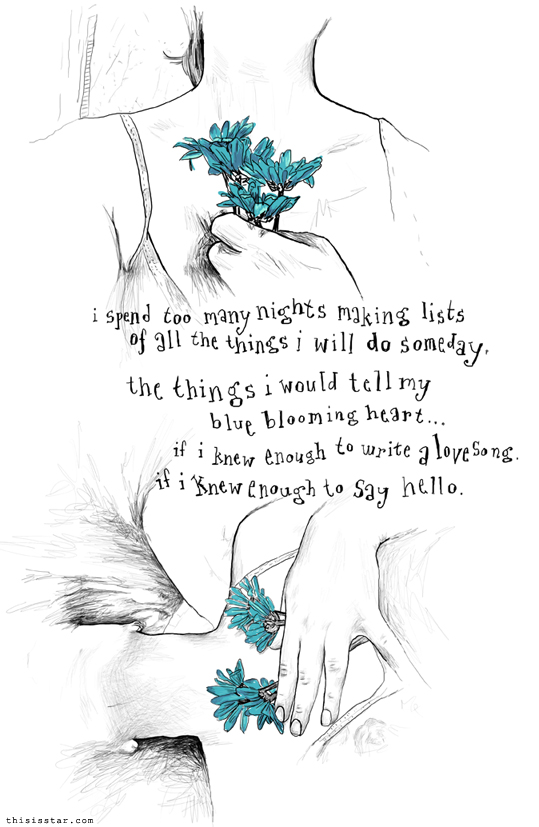 i spend too many nights making lists
of all the things i will do someday,
the things i would tell my
blue blooming heart...
if i knew enough to write a love song.
if i knew enough to say hello.
thisisstar.com